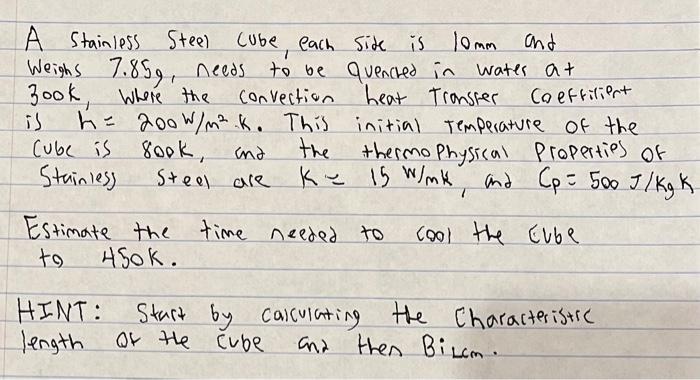 A Stainless Steel Cube, each Side is 10mm and
Weighs 7.85g, needs to be Quenched in water at
300K, Where the convection heat Transfer Coefficient
is h = 200 W/m² K. This initial Temperature of the
Cube is 800K, and the thermo Physical Properties of
Stainless Steel are K = 15 W/mK, and Cp = 500 J/Kg K
Estimate the time needed to cool the Cube
to 450K.
HINT: Start by Calculating the Characteristic
length of the Cube and then BiLcm.